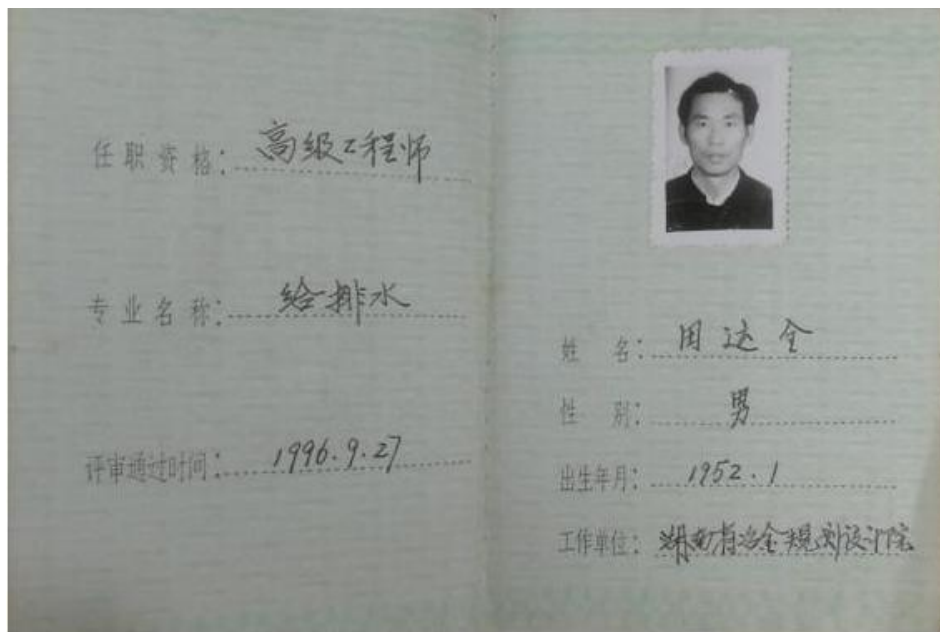 任职资格：高级工程师
专业名称：给排水
评审通过时间：1996.9.27
姓名：田达全
性别：男
出生年月：1952.1
工作单位：湖南省冶金规划设计院